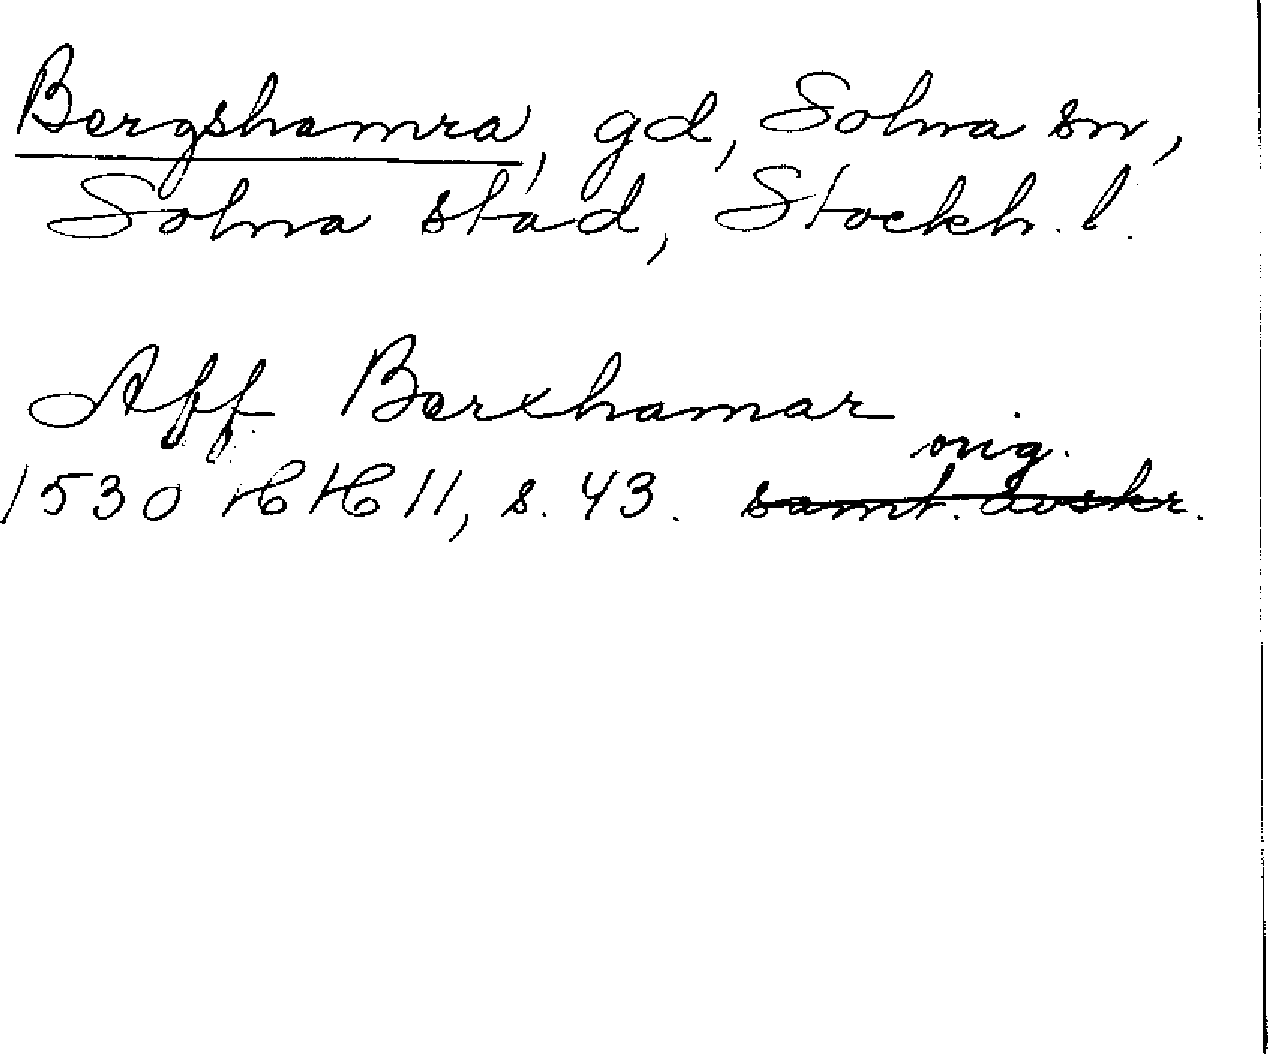 Bergshamra, gd, Solna sn,
Solna stad, Stockh. l.
Aff Berxhamar
orig.
1530 HH 11, s. 43. samt. avskr.